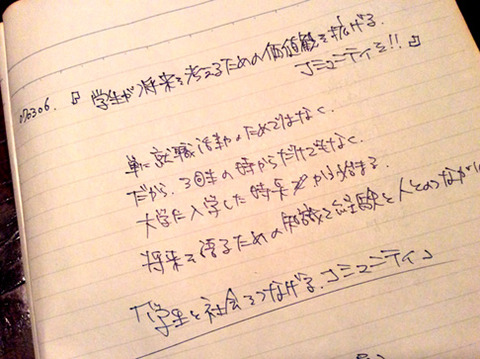 070306.『学生が将来を考えるための価値観を拡げる、
コミュニティを!!』
単に就職活動のためではなく、
だから、3回生の時からだけでもなく、
大学に入学した時点から始まる、
将来を語るための知識と経験と人とのつながり
「学生と社会をつなげる、コミュニティ」